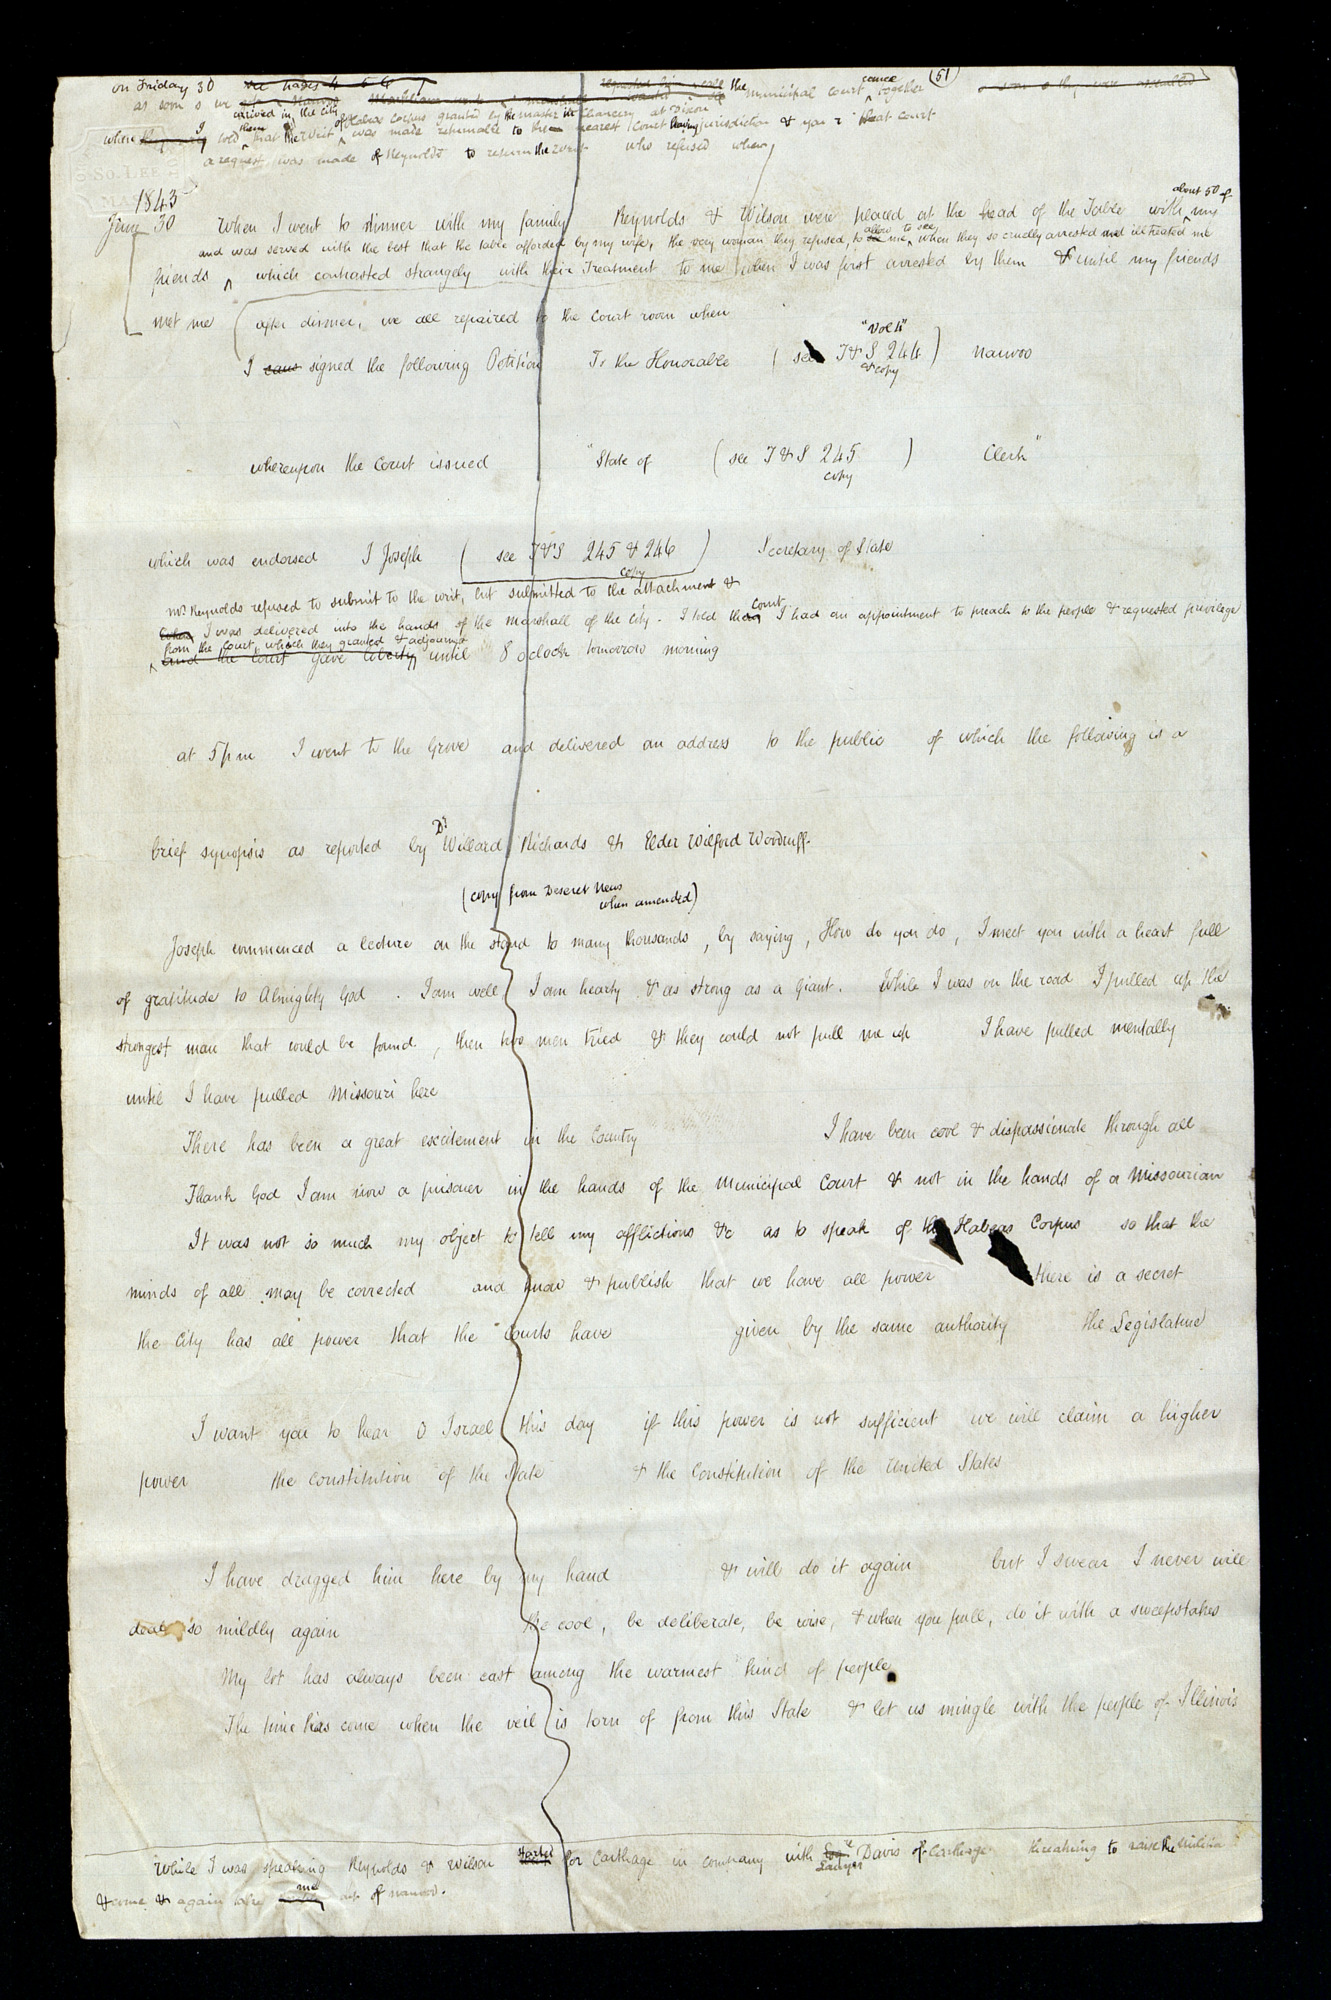 on Friday 30 see pages 4 5 6 requested by said the municipal court came together (51)
as soon as we arrived in the city
of Habeas Corpus granted by the master in Chancery at Dixon
where I told them that the writ was made returnable to the nearest Court having jurisdiction & you r that court
a request was made of Reynolds to return the writ who refused when
S. O. LEE
1843
about 50 of
June 30 When I went to dinner with my family Reynolds & Wilson were placed at the head of the Table with my
allow to see
and was served with the best that the table afforded by my wife, the very woman they refused, to see me, when they so cruelly arrested and illtreated me
friends which contrasted strangely with their Treatment to me when I was first arrested by them & until my friends
met me after dinner, we all repaired to the Court room when
"Vol 4"
I signed the following Petition To the Honorable (see T & S 244) Nauvoo
& copy
whereupon the Court issued "State of (see T & S 245) Clerk"
copy
which was endorsed I Joseph (see T & S 245 & 246) Secretary of State
copy
Mr. Reynolds refused to submit to the writ, but submitted to the attachment &
Court
when I was delivered into the hands of the marshall of the city. I told them I had an appointment to preach to the people & requested privilege
from the Court, which they granted & adjourned
and the court gave liberty until 8 oclock tomorrow morning
at 5 pm I went to the Grove and delivered an address to the public of which the following is a
Dr
brief synopsis as reported by Willard Richards & Elder Wilford Woodruff.
(copy from Deseret News
when amended)
Joseph commenced a lecture on the stand to many thousands, by saying, How do you do, I meet you with a heart full
of gratitude to Almighty God. I am well I am hearty & as strong as a Giant. While I was on the road I pulled up the
strongest man that could be found, then two men tried & they could not pull me up I have pulled mentally
until I have pulled Missouri here
There has been a great excitement in the Country I have been cool & dispassionate through all
Thank God I am now a prisoner in the hands of the Municipal Court & not in the hands of a Missourian
It was not so much my object to tell my afflictions &c as to speak of the Habeas Corpus so that the
minds of all may be corrected and know & publish that we have all power there is a secret
the City has all power that the Courts have given by the same authority the Legislature
I want you to hear O Israel this day if this power is not sufficient we will claim a higher
power the constitution of the State & the Constitution of the United States
I have dragged him here by my hand & will do it again but I swear I never will
deal so mildly again be cool, be deliberate, be wise, & when you pull, do it with a sweepstakes
My lot has always been cast among the warmest kind of people
The time has come when the veil is torn of from this State & let us mingle with the people of Illinois
While I was speaking Reynolds & Wilson started for Carthage in company with Lawyer Davis of Carthage threatning to raise the Militia
& come & again take me out of Nauvoo.